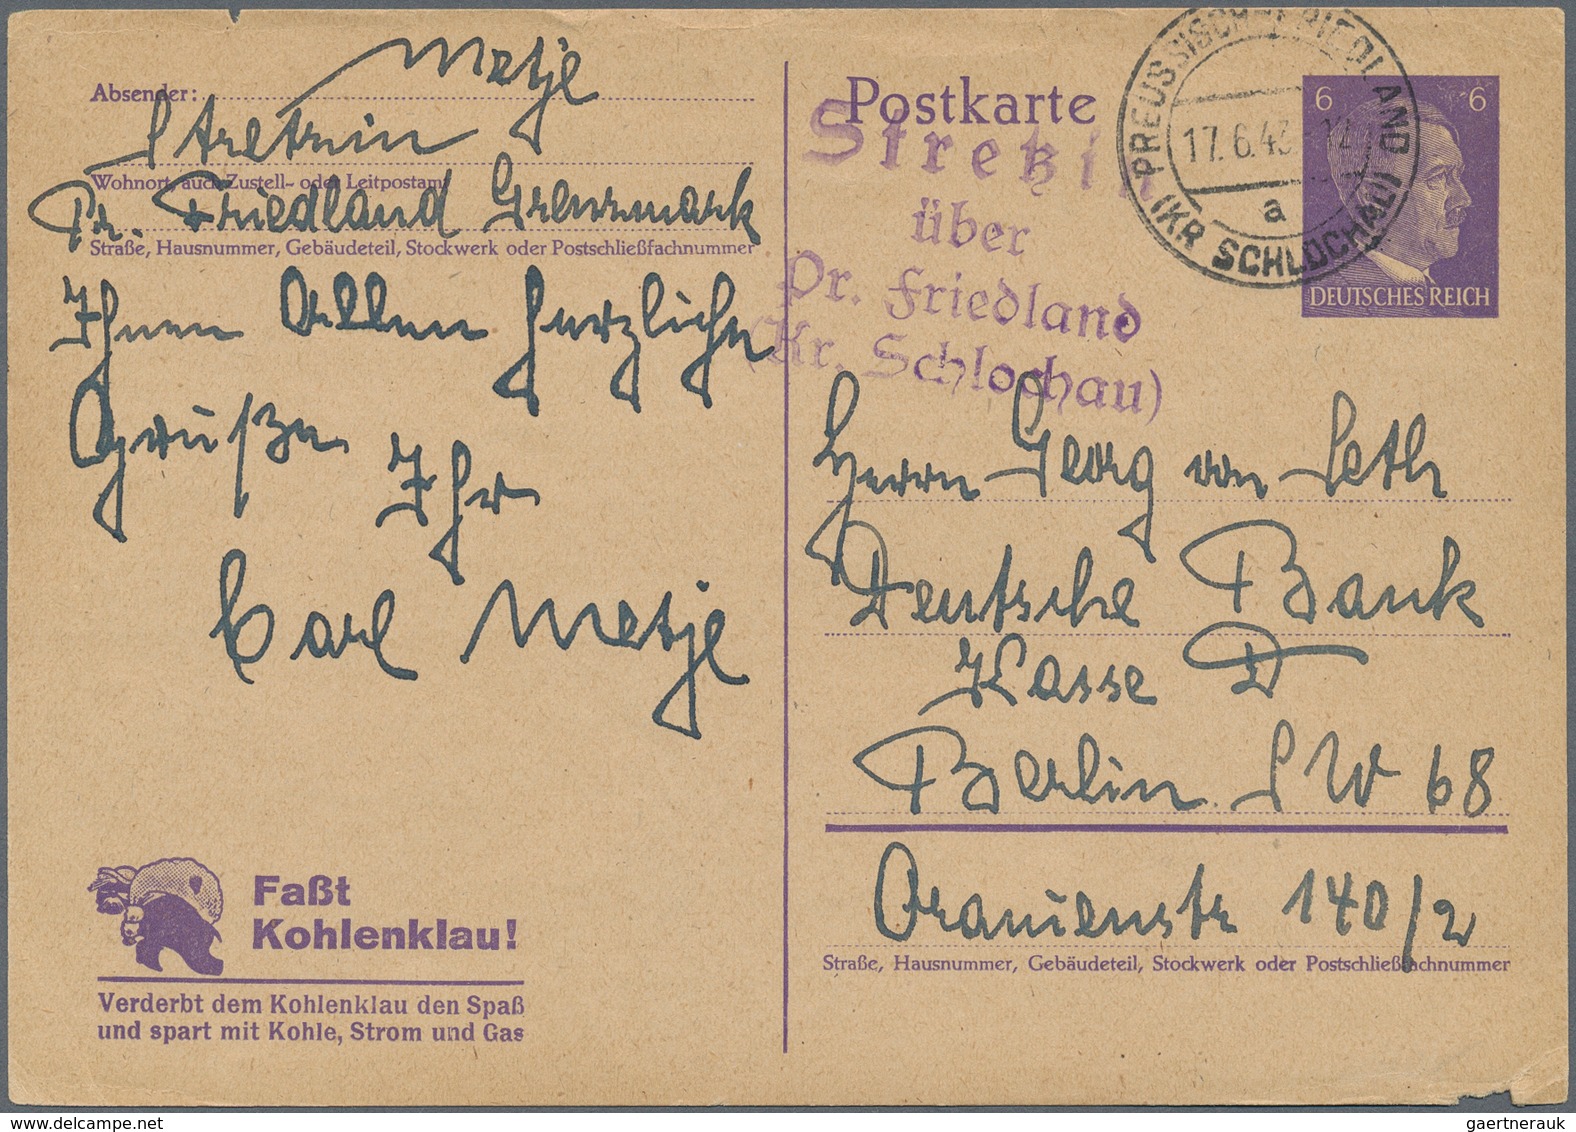 Absender: Metje
Stretzin
Wohnort, auch Zustell- oder Leitpostamt
Pr. Friedland Grenzmark
Straße, Hausnummer, Gebäudeteil, Stockwerk oder Postschließfachnummer
Ihnen Allen herzliche
Grüße
Ihr
Carl Metje
Faßt
Kohlenklau!
Verderbt dem Kohlenklau den Spaß
und spart mit Kohle, Strom und Gas
Postkarte
Stretzin
über
Pr. Friedland
(Kr. Schlochau)
PREUSSISCH FRIEDLAND
17.6.43.-12
a
(KR SCHLOCHAU)
6 6
DEUTSCHES REICH
Herrn Georg von Seth
Deutsche Bank
Kasse D
Berlin SW 68
Oranienstr 140/2
Straße, Hausnummer, Gebäudeteil, Stockwerk oder Postschließfachnummer
gaertnerauk